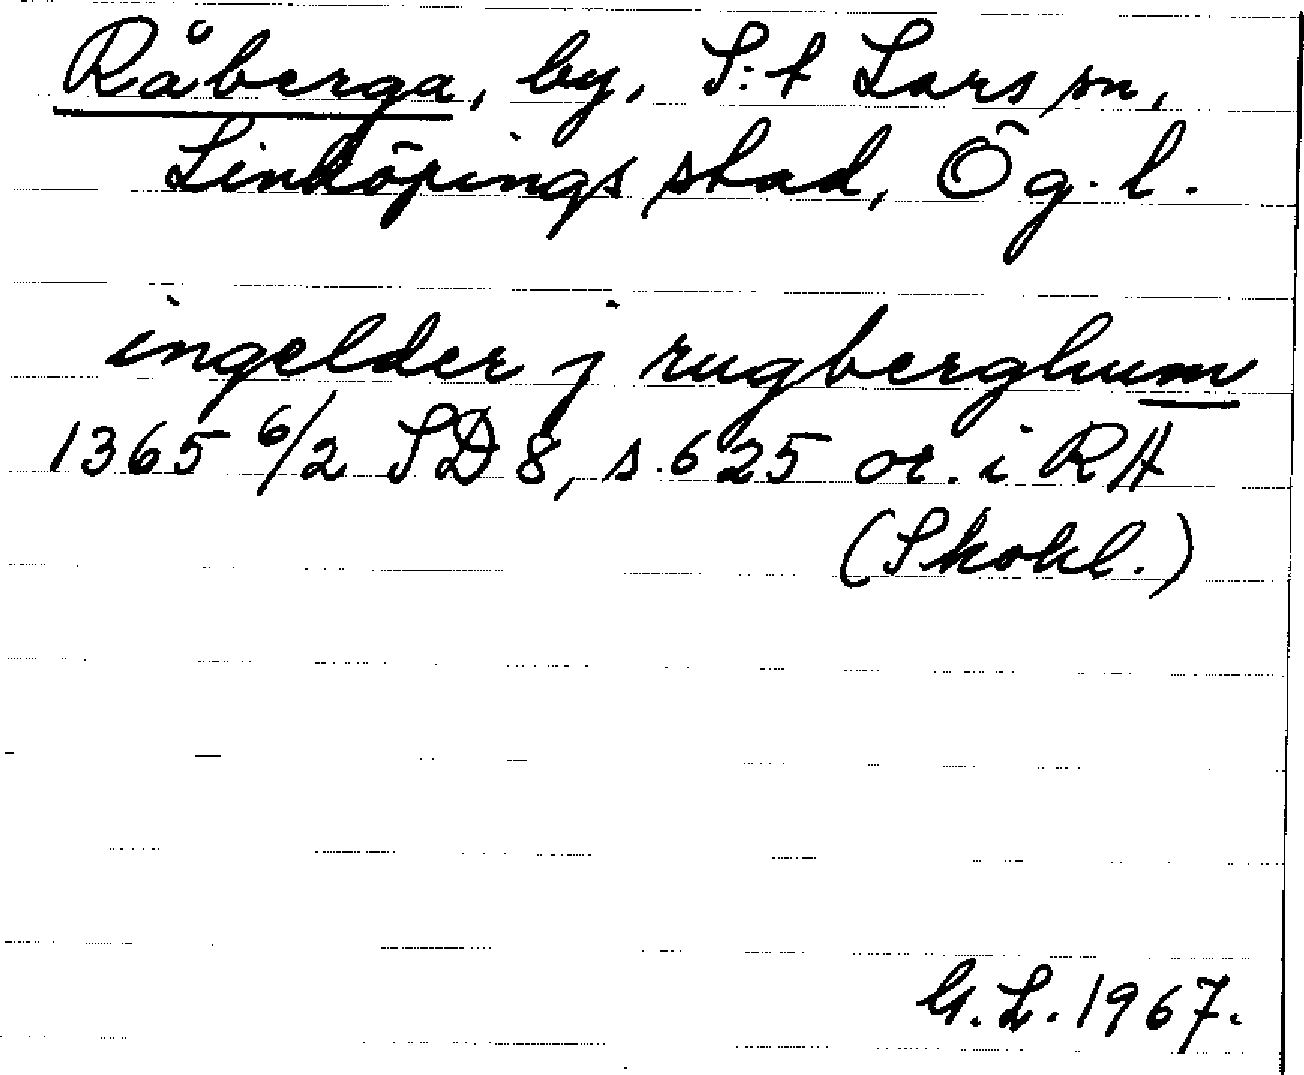 Råberga, by, S:t Lars sn,
Linköpings stad, Ög. l.
ingelder j rugberghum
1365 6/2 SD 8, s. 625 or. i RA
(Skokl.)
G. L. 1967.